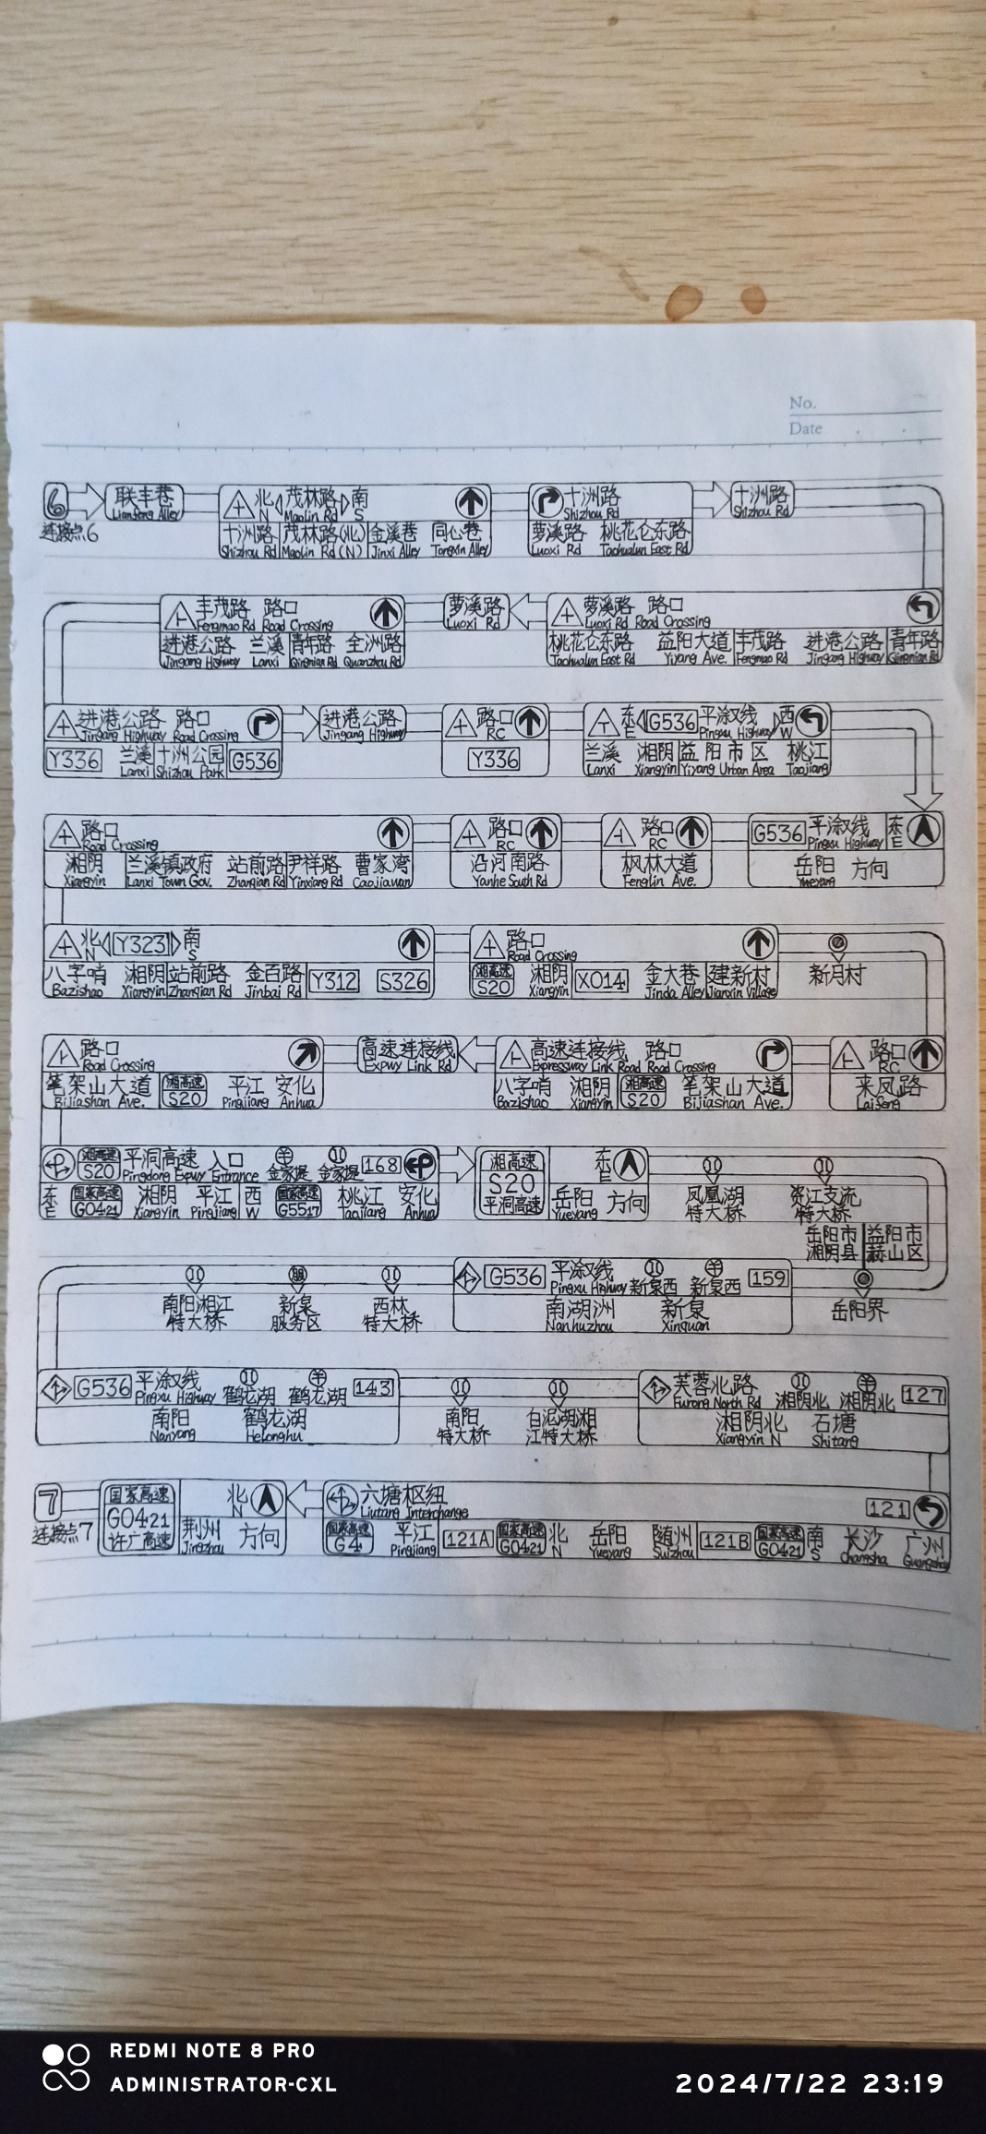 No.
Date
6 联丰巷 北 茂林路 南 十洲路 十洲路
Lianfeng Alley N Maolin Rd S Shizhou Rd Shizhou Rd
连接点6 十洲路 茂林路(北) 金溪巷 同心巷 萝溪路 桃花仑东路
Shizhou Rd Maolin Rd (N) Jinxi Alley Tongxin Alley Luoxi Rd Taohualun East Rd
丰茂路 路口 萝溪路 萝溪路 路口
Fengmao Rd Road Crossing Luoxi Rd Luoxi Rd Road Crossing
进港公路 兰溪 青年路 全洲路 桃花仑东路 益阳大道 丰茂路 进港公路 青年路
Jingang Highway Lanxi Qingnian Rd Quanzhou Rd Taohualun East Rd Yiyang Ave. Fengmao Rd Jingang Highway Qingnian Rd
进港公路 路口 进港公路 路口 东 G536 平溆线 西
Jingang Highway Road Crossing Jingang Highway RC E Pingxu Highway W
Y336 兰溪 十洲公园 G536 Y336 兰溪 湘阴 益阳市区 桃江
Lanxi Shizhou Park Lanxi Xiangyin Yiyang Urban Area Taojiang
路口 路口 路口 G536 平溆线 东
Road Crossing RC RC Pingxu Highway E
湘阴 兰溪镇政府 站前路 伊祥路 曹家湾 沿河南路 枫林大道 岳阳 方向
Xiangyin Lanxi Town Gov. Zhanqian Rd Yinxiang Rd Caojiawan Yanhe South Rd Fenglin Ave. Yueyang
北 Y323 南 路口
N S Road Crossing
八字哨 湘阴 站前路 金百路 Y312 S326 湘高速 S20 湘阴 X014 金大巷 建新村 新月村
Bazishao Xiangyin Zhanqian Rd Jinbai Rd Xiangyin Jinda Alley Jianxin Village
路口 高速连接线 高速连接线 路口 路口
Road Crossing Expwy Link Rd Expressway Link Road Road Crossing RC
笔架山大道 湘高速 S20 平江 安化 八字哨 湘阴 湘高速 S20 笔架山大道 来凤路
Bijiashan Ave. Pingjiang Anhua Bazishao Xiangyin Bijiashan Ave. Laifeng
湘高速 S20 平洞高速 入口 金家堤 金家堤 168 湘高速 东
Pingdong Expwy Entrance S20 E
东 国家高速 G0421 湘阴 平江 西 国家高速 G5517 桃江 安化 平洞高速 岳阳 方向 凤凰湖 资江支流
E Xiangyin Pingjiang W Taojiang Anhua Yueyang 特大桥 特大桥
岳阳市 益阳市
湘阴县 赫山区
G536 平溆线 新泉西 新泉西 159
Pingxu Highway
南阳湘江 新泉 西林 南湖洲 新泉 岳阳界
特大桥 服务区 特大桥 Nanhuzhou Xinquan
G536 平溆线 鹤龙湖 鹤龙湖 143 芙蓉北路 湘阴北 湘阴北 127
Pingxu Highway Furong North Rd
南阳 鹤龙湖 南阳 白泥湖湘 湘阴北 石塘
Nanyang Helonghu 特大桥 江特大桥 Xiangyin N Shitang
7 国家高速 北 六塘枢纽 121
G0421 N Liutang Interchange
连接点7 许广高速 荆州 方向 国家高速 G4 平江 121A 国家高速 G0421 北 岳阳 随州 121B 国家高速 G0421 南 长沙 广州
Jingzhou Pingjiang N Yueyang Suizhou S Changsha Guangzhou
REDMI NOTE 8 PRO
ADMINISTRATOR-CXL
2024/7/22 23:19